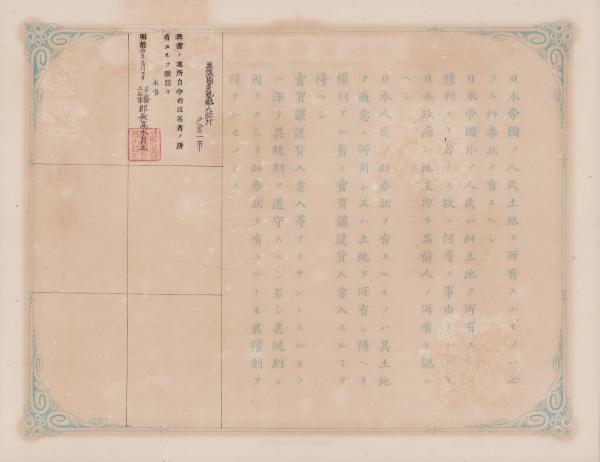 日本帝國ノ人民土地ヲ所有スルモノハ必
ラス此券狀ヲ有スヘシ
日本帝國外ノ人民ハ此土地ヲ所有スルノ
權利ナキ者トス故ニ何等ノ事由アルトモ
日本政府ハ地主即チ名前人ノ所有ト認ム
ヘシ
日本人民ノ此券狀ヲ有スルモノハ其土地
ヲ適意ニ所用シ又ハ土地ヲ所有シ得ヘキ
權利アル者ニ賣買讓渡質入書入スルコヲ
得ヘシ
賣買讓渡質入書入等ヲナサントスルモノ
ハ渾テ其規則ヲ遵守スヘシ若シ其規則ニ
因ラスシテ此券狀ヲ有スルトモ其權利ヲ
得サルモノトス
美濃國
戸倉一市
表書ノ地所自今右記名者ノ所
有タルヲ確認ス
明治
郡長